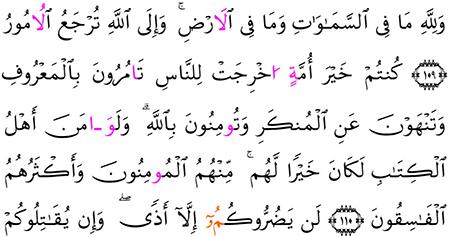 وَلِلَّهِ مَا فِى السَّمَٰوَٰتِ وَمَا فِى الَارْضِ ۚ وَإِلَى اللَّهِ تُرْجَعُ الُامُورُ
﴿١٠٩﴾ كُنتُمْ خَيْرَ أُمَّةٍ اخْرِجَتْ لِلنَّاسِ تَامُرُونَ بِالْمَعْرُوفِ
وَتَنْهَوْنَ عَنِ الْمُنكَرِ وَتُومِنُونَ بِاللَّهِ ۗ وَلَوَ ـامَنَ أَهْلُ
الْكِتَٰبِ لَكَانَ خَيْرًا لَّهُم ۚ مِّنْهُمُ الْمُومِنُونَ وَأَكْثَرُهُمُ
الْفَٰسِقُونَ ﴿١١٠﴾ لَن يَضُرُّوكُمُۥٓ إِلَّآ أَذًى ۖ وَإِن يُقَٰتِلُوكُمْ